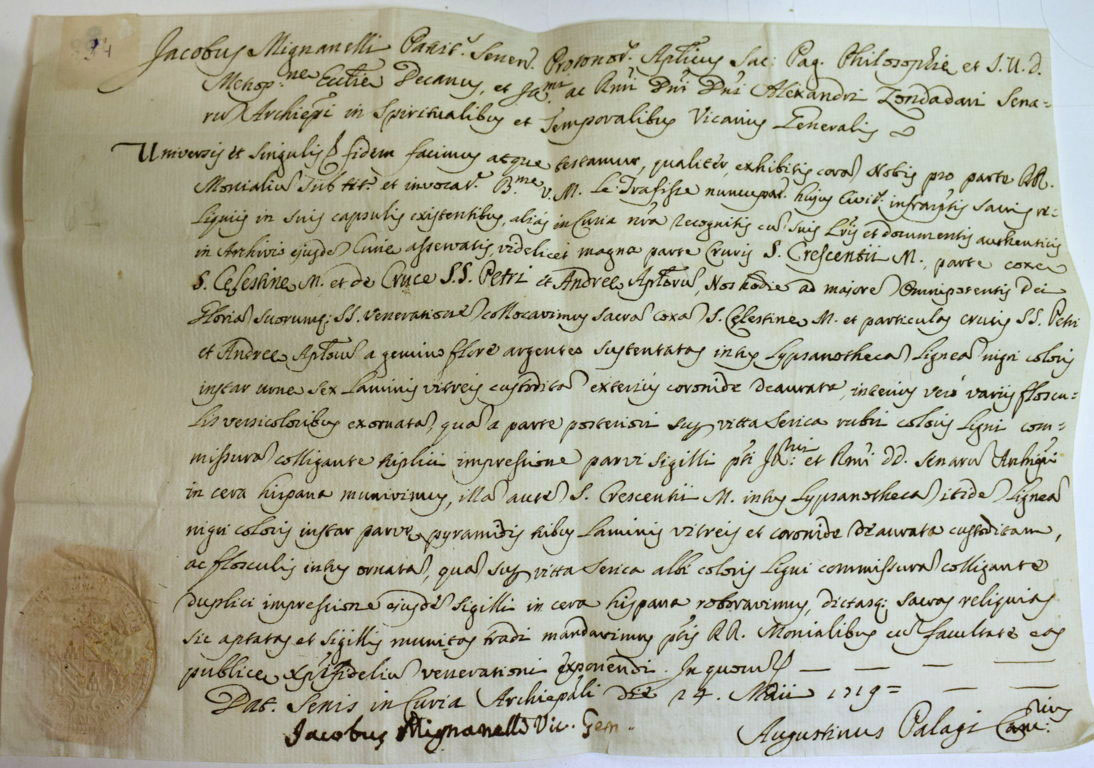 Jacobus Mignanelli Patrit.s Senen. Protonot.s Aplicus Sac: Pag. Philosophiæ et I. U. D.
Metrop.ne Ecclie Decanus, et Ill.mi ac Rmi Dni Dni Alexandri Zondadari Sena=
rū Archiepi in Spiritualibus et Temporalibus Vicarius Generalis
Universis et singulis fidem facimus atque testamur, qualiter exhibitis corā Nobis pro parte RR.
Monialiū sub tit.o et invocat.e B.me V. M. Le Trafisse nuncupat. hujus Civit. infrāptis sacris re=
liquiis in suis capsulis existentibus, alias in Curia nrā recognitis cū suis Lris et documentis authenticis
in Archivio ejusdē Curie asservatis, videlicet magna parte Cruris S. Crescentii M., parte coxe
S. Celestine M. et de Cruce S.S. Petri et Andree Aplorū, Nos hodie ad majorē Omnipotentis Dei
Gloriā, suorumq; SS. venerationē collocavimus sacrā coxā S. Celestine M. et particulas crucis SS. Petri
et Andree Aplorū a gemino flore argenteo sustentatas intus Lypsanothecā Ligneā nigri coloris
instar urne sex Laminis vitreis custoditā exterius coronide deaurata, interius vero variis floscu=
lis versicoloribus exornatā, quā a parte posteriori sup vitta serica rubri coloris Ligni com=
missurā colligante triplici impressione parvi sigilli pti Ill.mi et Rmi DD. Senarū Archiepi
in cera hispana munivimus, illā autē S. Crescentii M. intus Lypsanothecā itidē Ligneā
nigri coloris instar parve pyramidis tribus Laminis vitreis et coronide deaurata custoditam,
ac flosculis intus ornatā, quā sup vitta serica albi coloris Ligni commissurā colligante
duplici impressione ejusdē sigilli in cera hispana roboravimus, dictasq; sacras reliquias
sic aptatas et sigillis munitas tradi mandavimus ptis RR. Monialibus cū facultate eas
publice xpifideliū venerationi exponendi. In quorū
Dat. Senis in Curia Archiepāli die 24. Maii 1719=
Jacobus Mignanelli Vic. Gen.
Augustinus Palagi Canc.rius